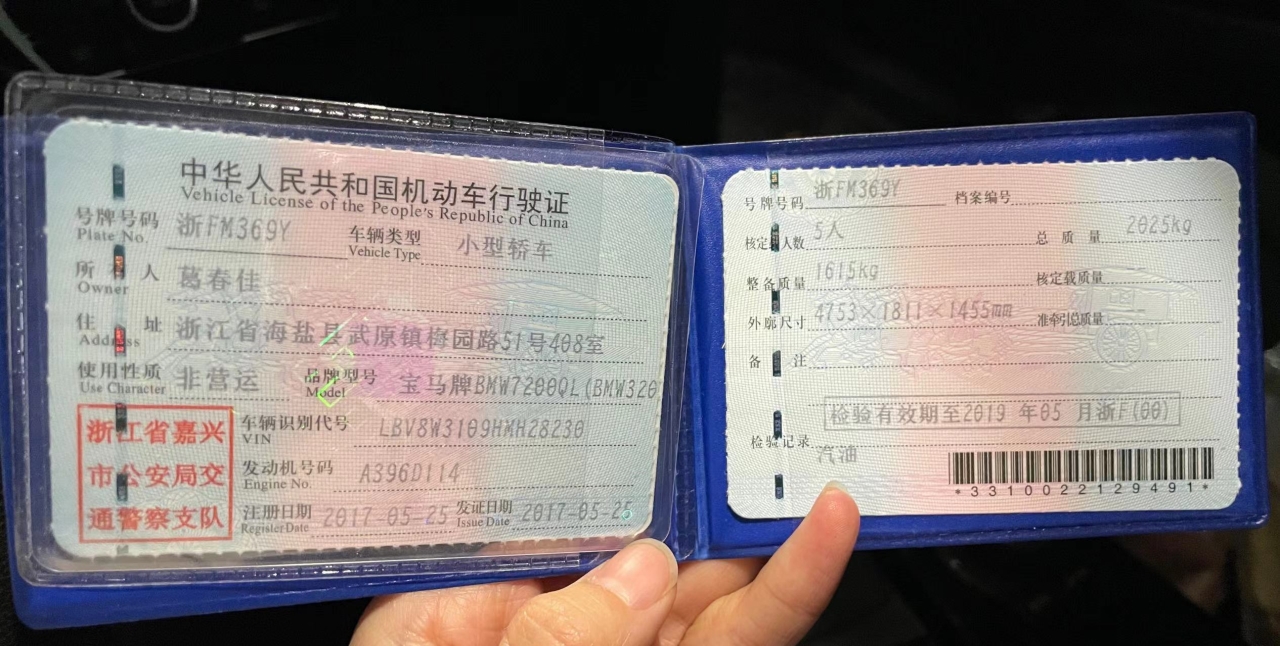 中华人民共和国机动车行驶证
Vehicle License of the People's Republic of China
号牌号码 浙FM369Y 车辆类型 小型轿车
Plate No. Vehicle Type
所有人 葛春佳
Owner
住址 浙江省海盐县武原镇梅园路51号408室
Address
使用性质 非营运 品牌型号 宝马牌BMW7200QL(BMW320
Use Character Model
浙江省嘉兴
市公安局交
通警察支队
车辆识别代号 LBV8W3109HMH28230
VIN
发动机号码 A396D114
Engine No.
注册日期 2017-05-25 发证日期 2017-05-25
Register Date Issue Date
号牌号码 浙FM369Y 档案编号
核定人数 5人 总质量 2025kg
整备质量 1615kg 核定载质量
外廓尺寸 4753×1811×1455mm 准牵引总质量
备注
检验有效期至2019 年05 月浙F(00)
检验记录
汽油
*3310022129491*